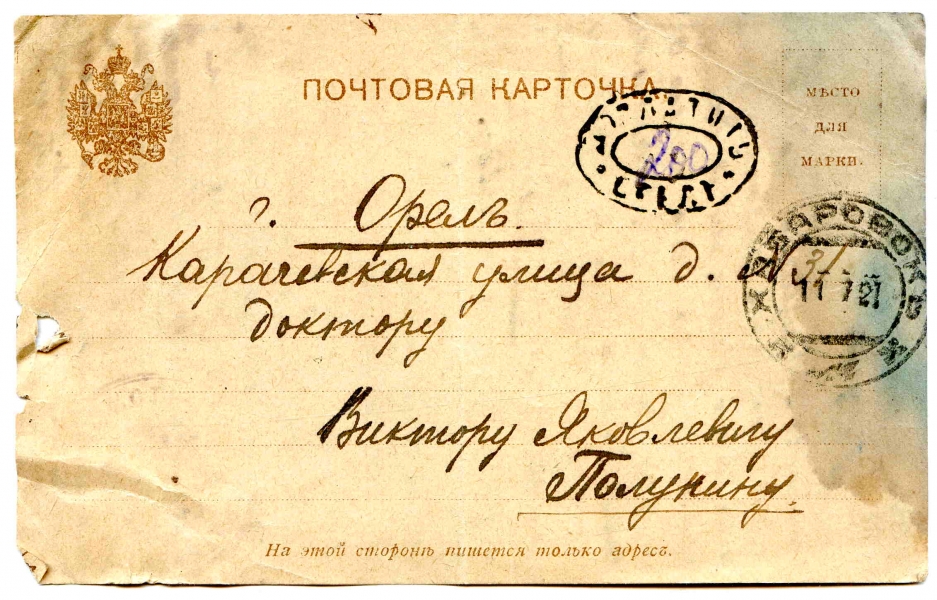 ПОЧТОВАЯ КАРТОЧКА.
МѢСТО
ДЛЯ
МАРКИ.
ДОПЛАТИТЬ
200
г. Орелъ.
Карачевская улица д. № 31
доктору
ХАБАРОВСКЪ
11 7 21
Виктору Яковлевичу
Полунину.
На этой сторонѣ пишется только адресъ.